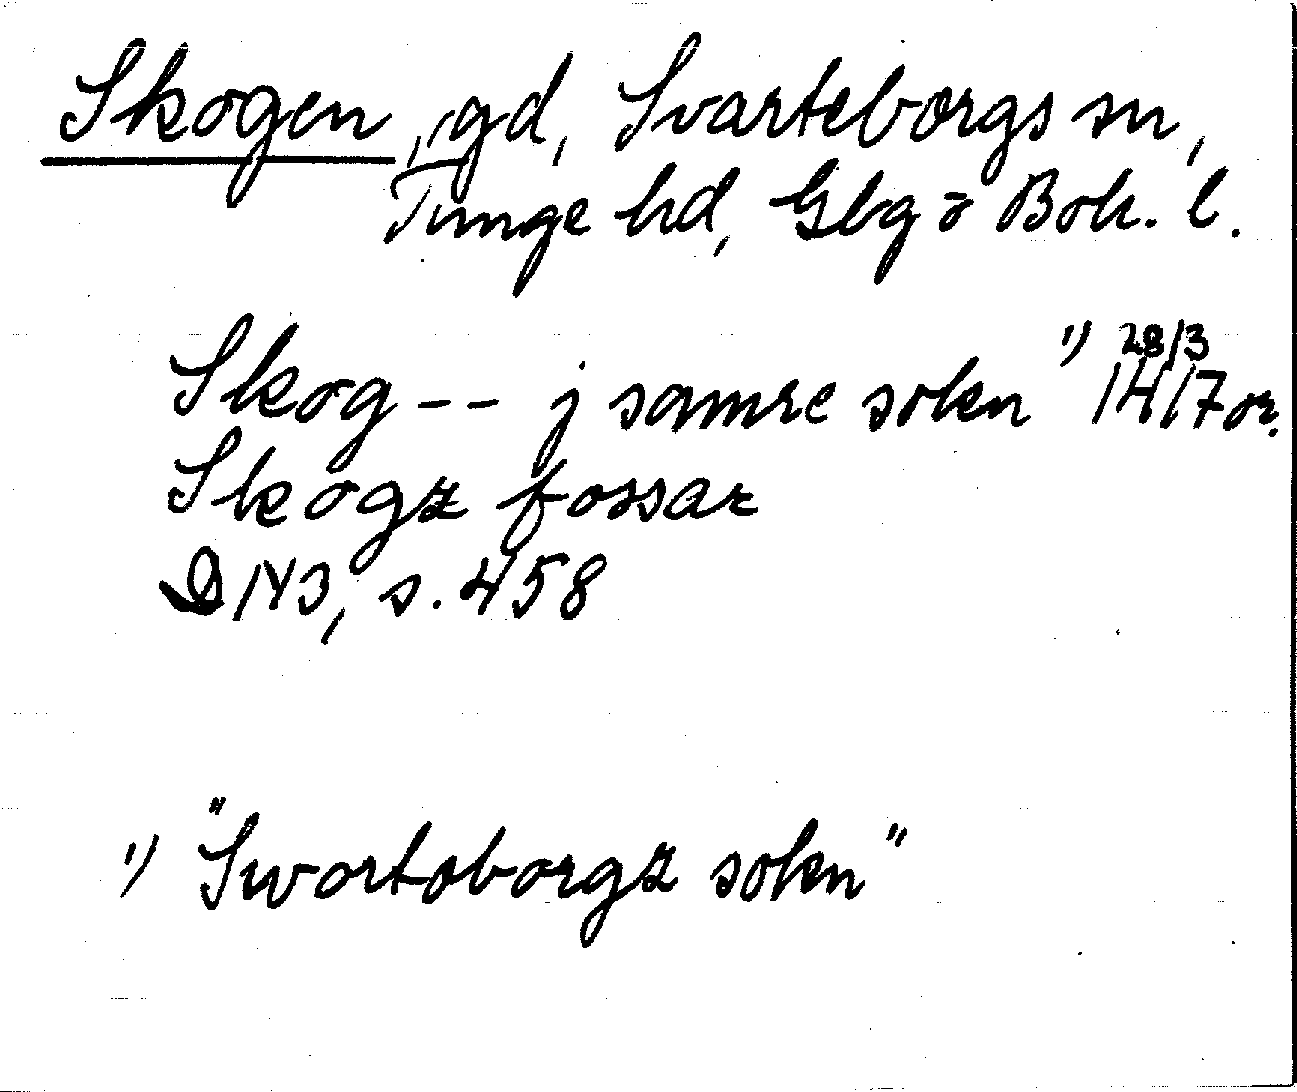 Skogen, gd, Svarteborgs sn,
Tunge hd, Gbg o Boh. l.
Skog -- j samre sokn 1) 28/3 1417 or.
Skogz fossar
D 143, s. 458
1) "Swortoborgz sokn"